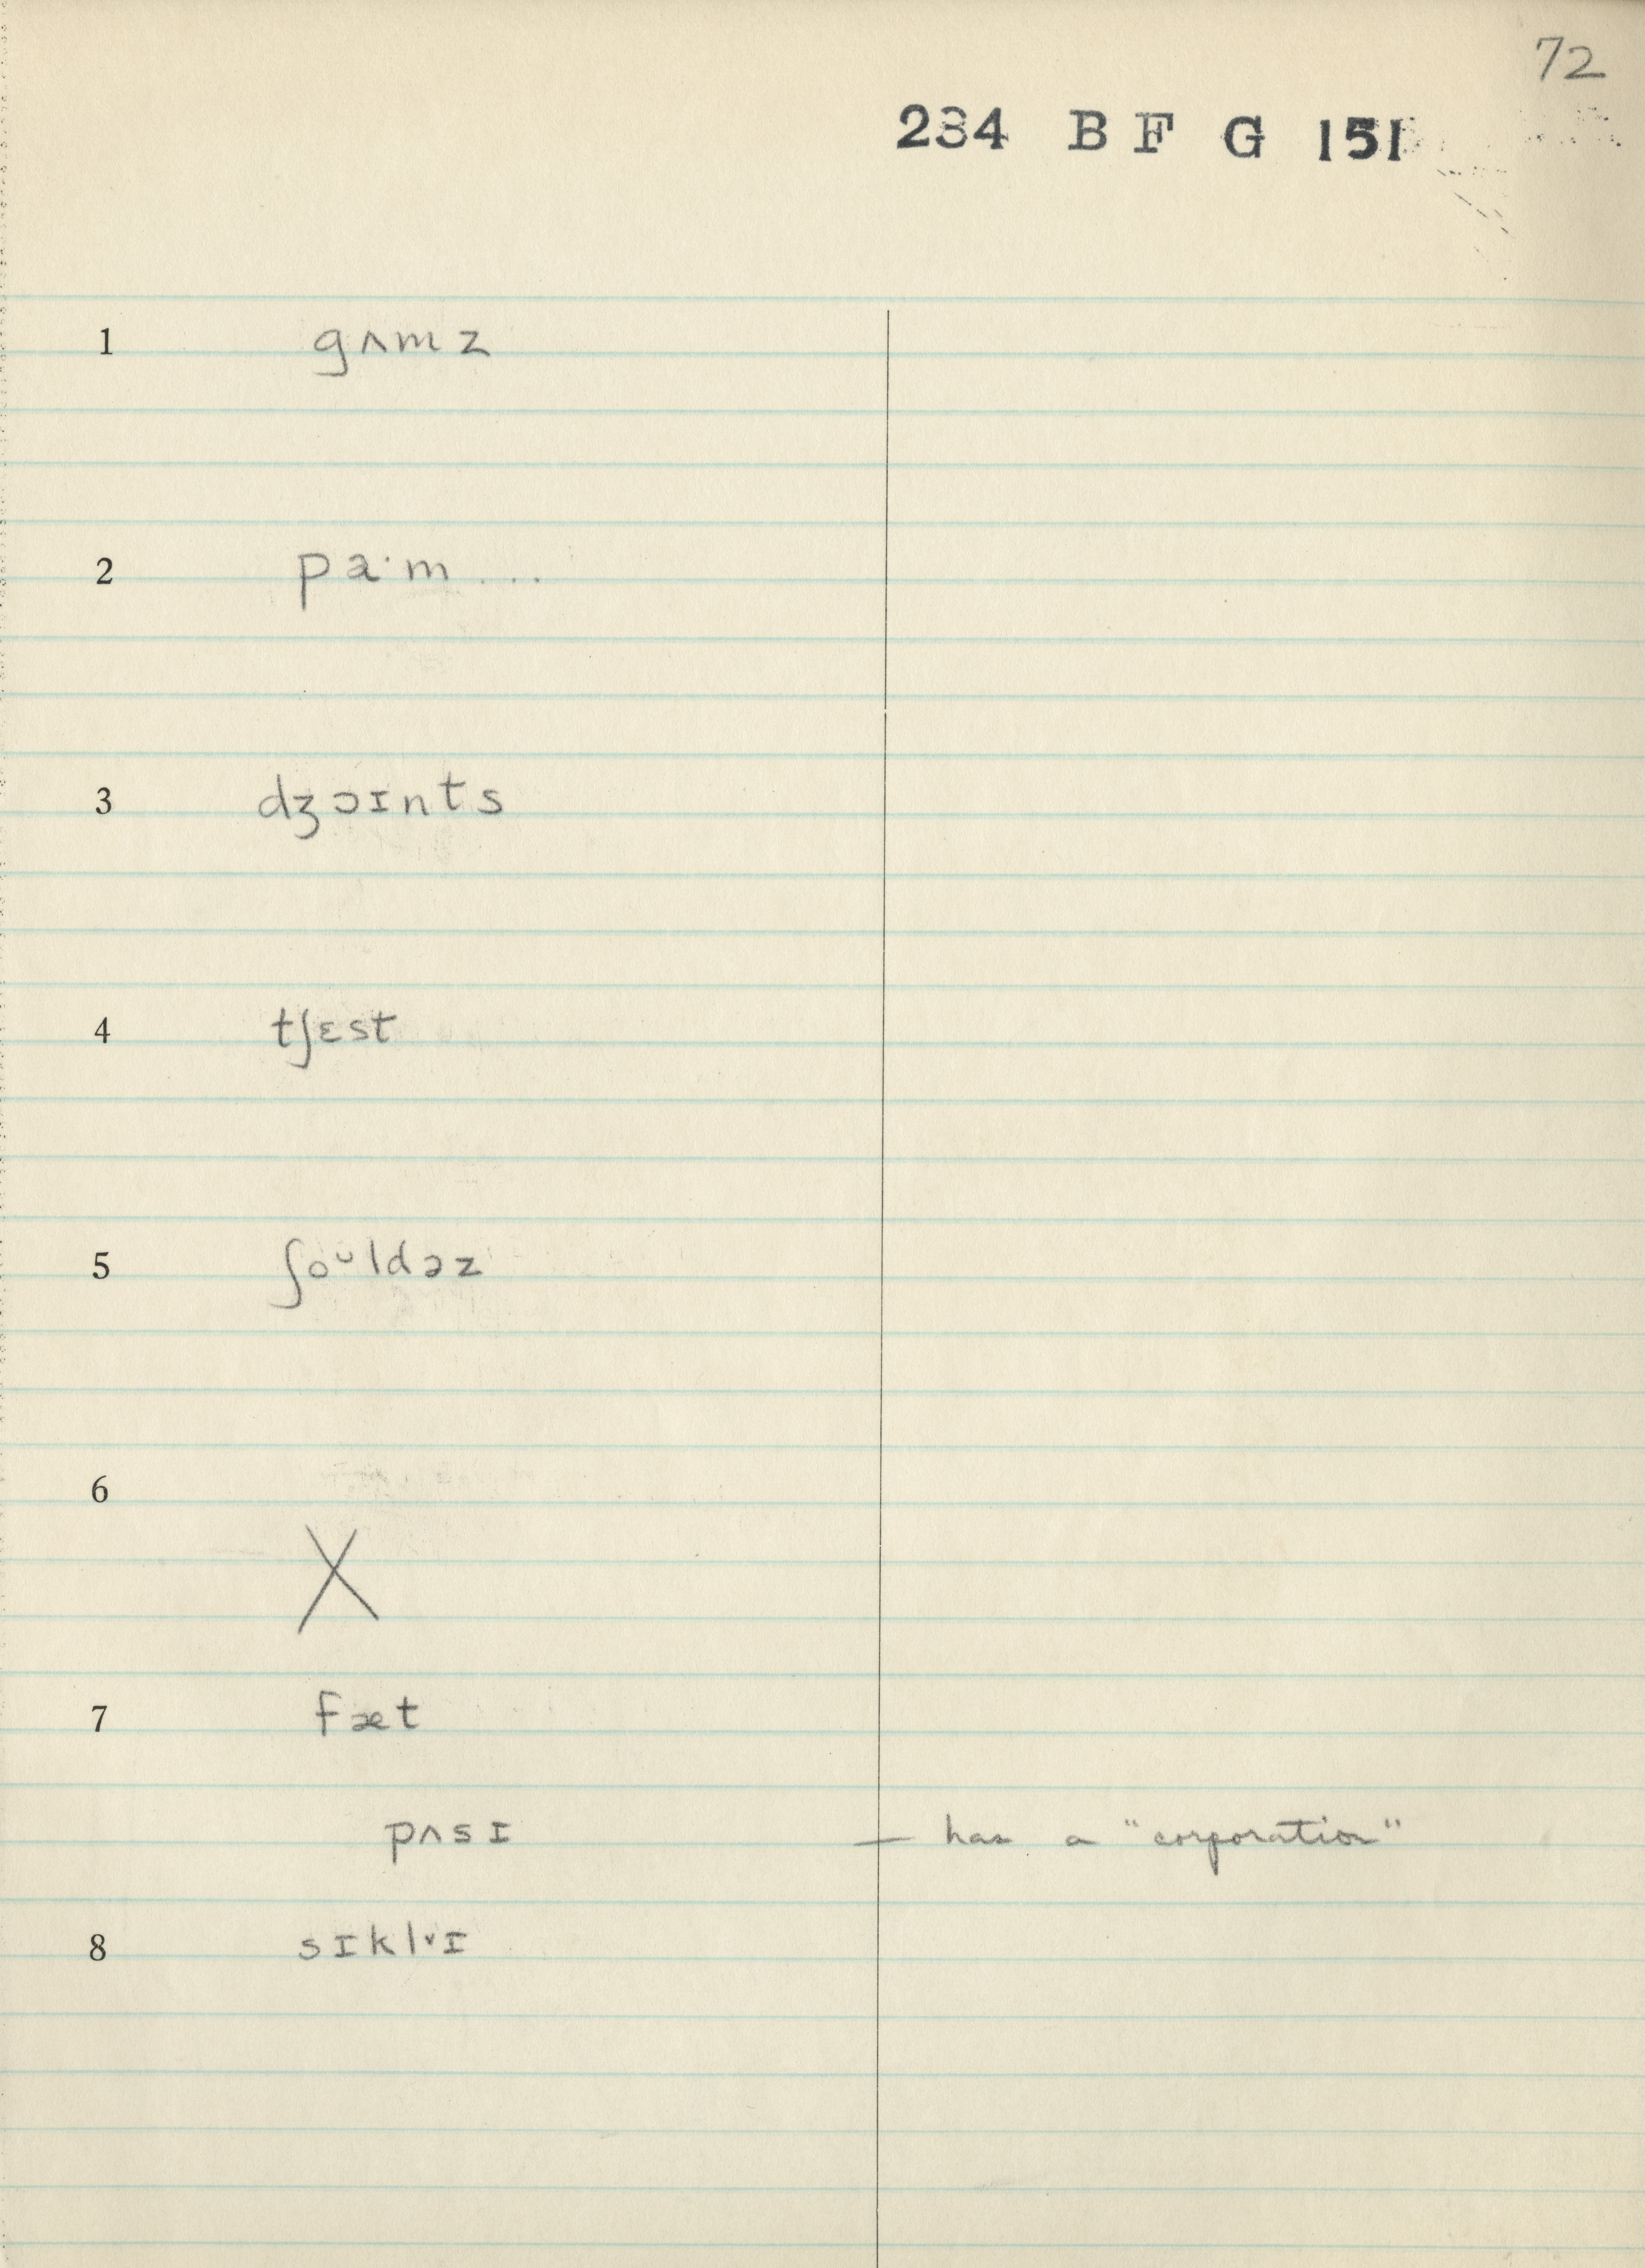 72
234 B F G 151
1 gʌmz
2 pa·m ...
3 dʒɔɪnts
4 tʃɛst
5 ʃoᵕldəz
6
X
7 fæt
pʌsɪ — has a "corporation"
8 sɪklᵛɪ